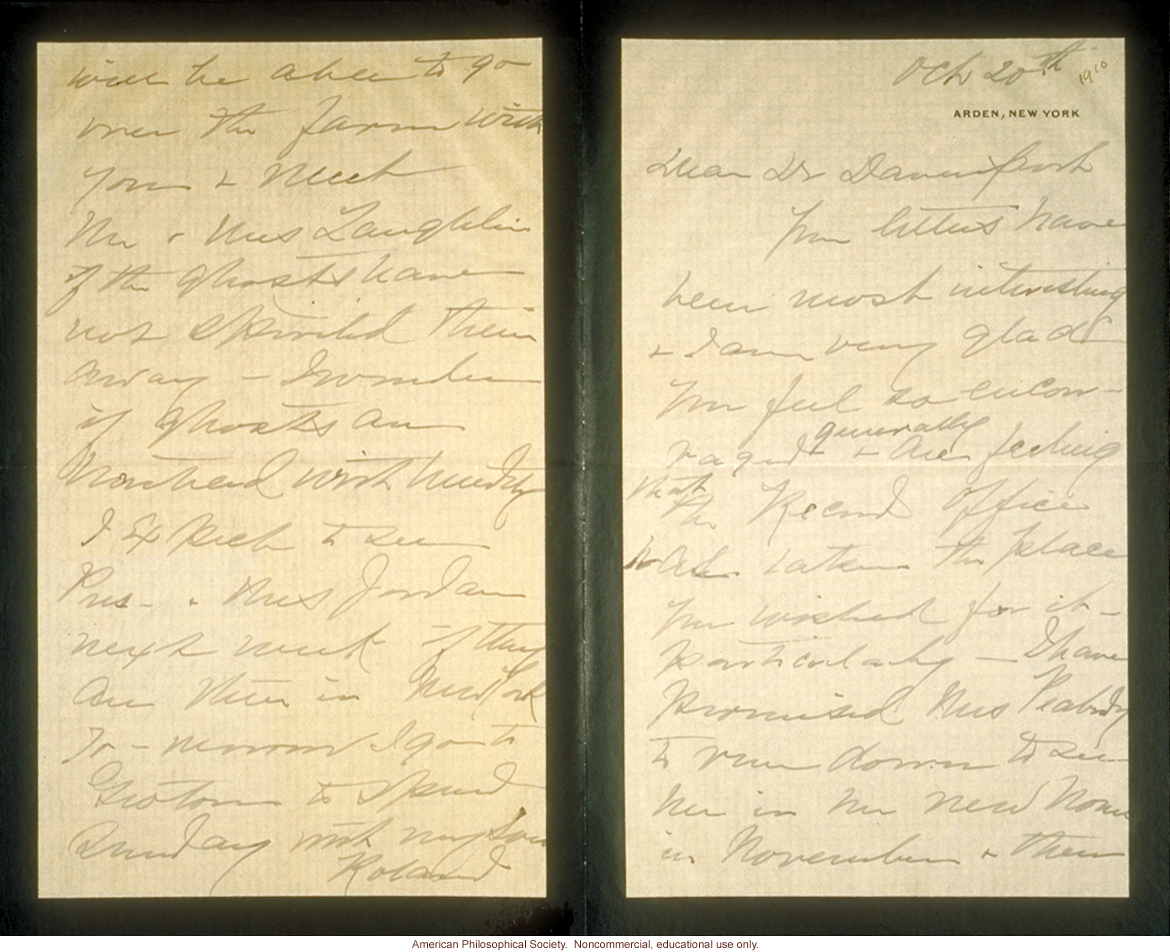 Oct 20th 1910
ARDEN, NEW YORK
Dear Dr Davenport
Your letters have
been most interesting
& I am very glad
you feel so encou-
raged & are generally feeling
that the Record Office
has taken the place
you wished for it -
particularly - I have
promised Mrs Peabody
to run down to see
her in her new home
in November & then
will be able to go
over the farm with
you & meet
Mr & Mrs Laughlin
if the ghosts have
not spirited them
away - I wonder
if ghosts are
I expect to see
Pres - & Mrs Jordan
next week if they
are then in New York
To-morrow I go to
Groton to spend
Sunday with my son
Roland
American Philosophical Society. Noncommercial, educational use only.